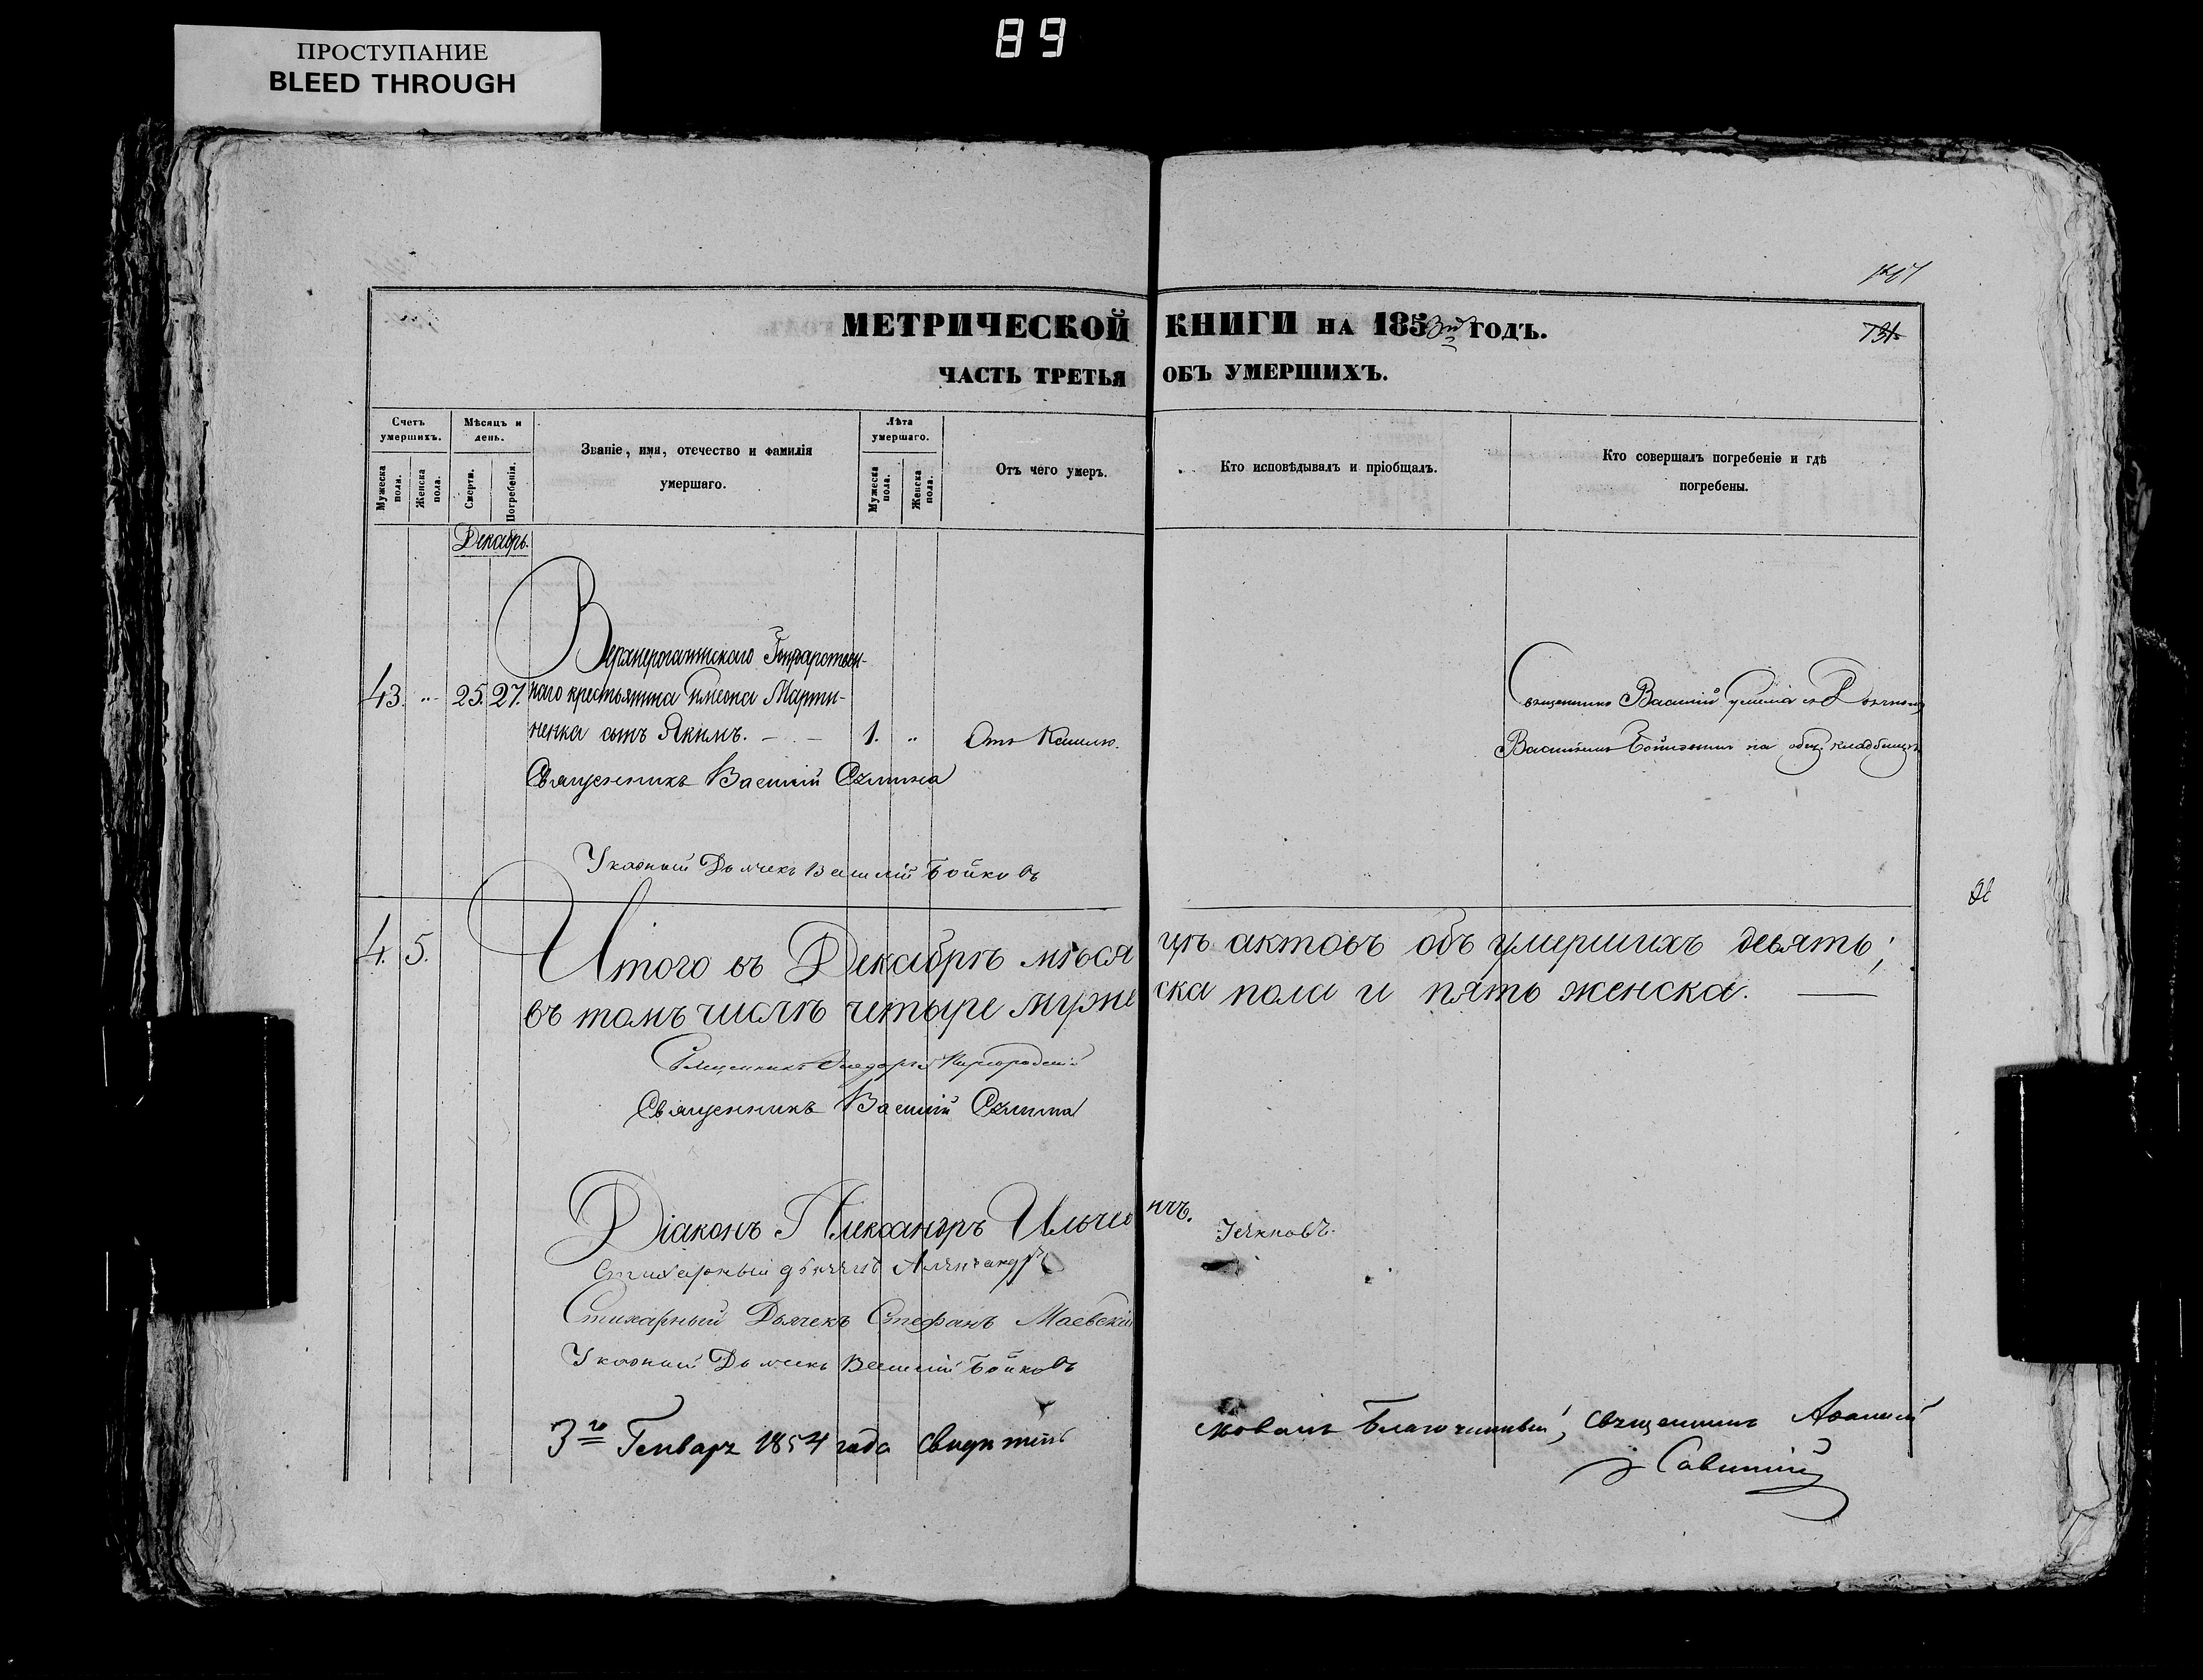 89
ПРОСТУПАНИЕ
BLEED THROUGH
МЕТРИЧЕСКОЙ КНИГИ НА 1853й ГОДЪ.
731
ЧАСТЬ ТРЕТЬЯ ОБЪ УМЕРШИХЪ.
Счетъ умершихъ.
Мужеска пола.
Женска пола.
Мѣсяцъ и день.
Смерти.
Погребенія.
Званіе, имя, отечество и фамилія
умершаго.
Лѣта умершаго.
Мужеска пола.
Женска пола.
Отъ чего умеръ.
Кто исповѣдывалъ и пріобщалъ.
Кто совершалъ погребеніе и гдѣ
погребены.
Декабрь.
Государствен-
43. „ 25. 27. наго крестьянина Симеона Марти-
ненка сынъ Якимъ. — — 1. „ Отъ Кашлю.
Священникъ Василій
Священникъ Василій съ Дьячкомъ
Василіемъ Бойковымъ на общ. кладбищѣ
Указный Дьячекъ Василій Бойковъ
4. 5. Итого въ Декабрѣ мѣсяцѣ актовъ объ умершихъ девять;
въ томъ числѣ четыре мужеска пола и пять женска. —
Священникъ Ѳеодоръ
Священникъ Василій
Діаконъ Александръ
Стихарный дьячекъ Александръ
Стихарный Дьячекъ Стефанъ Маевскій
Указный Дьячекъ Василій Бойковъ
3го Генваря 1854 года свидѣтельствовалъ Благочинный, Священникъ
Савинскій